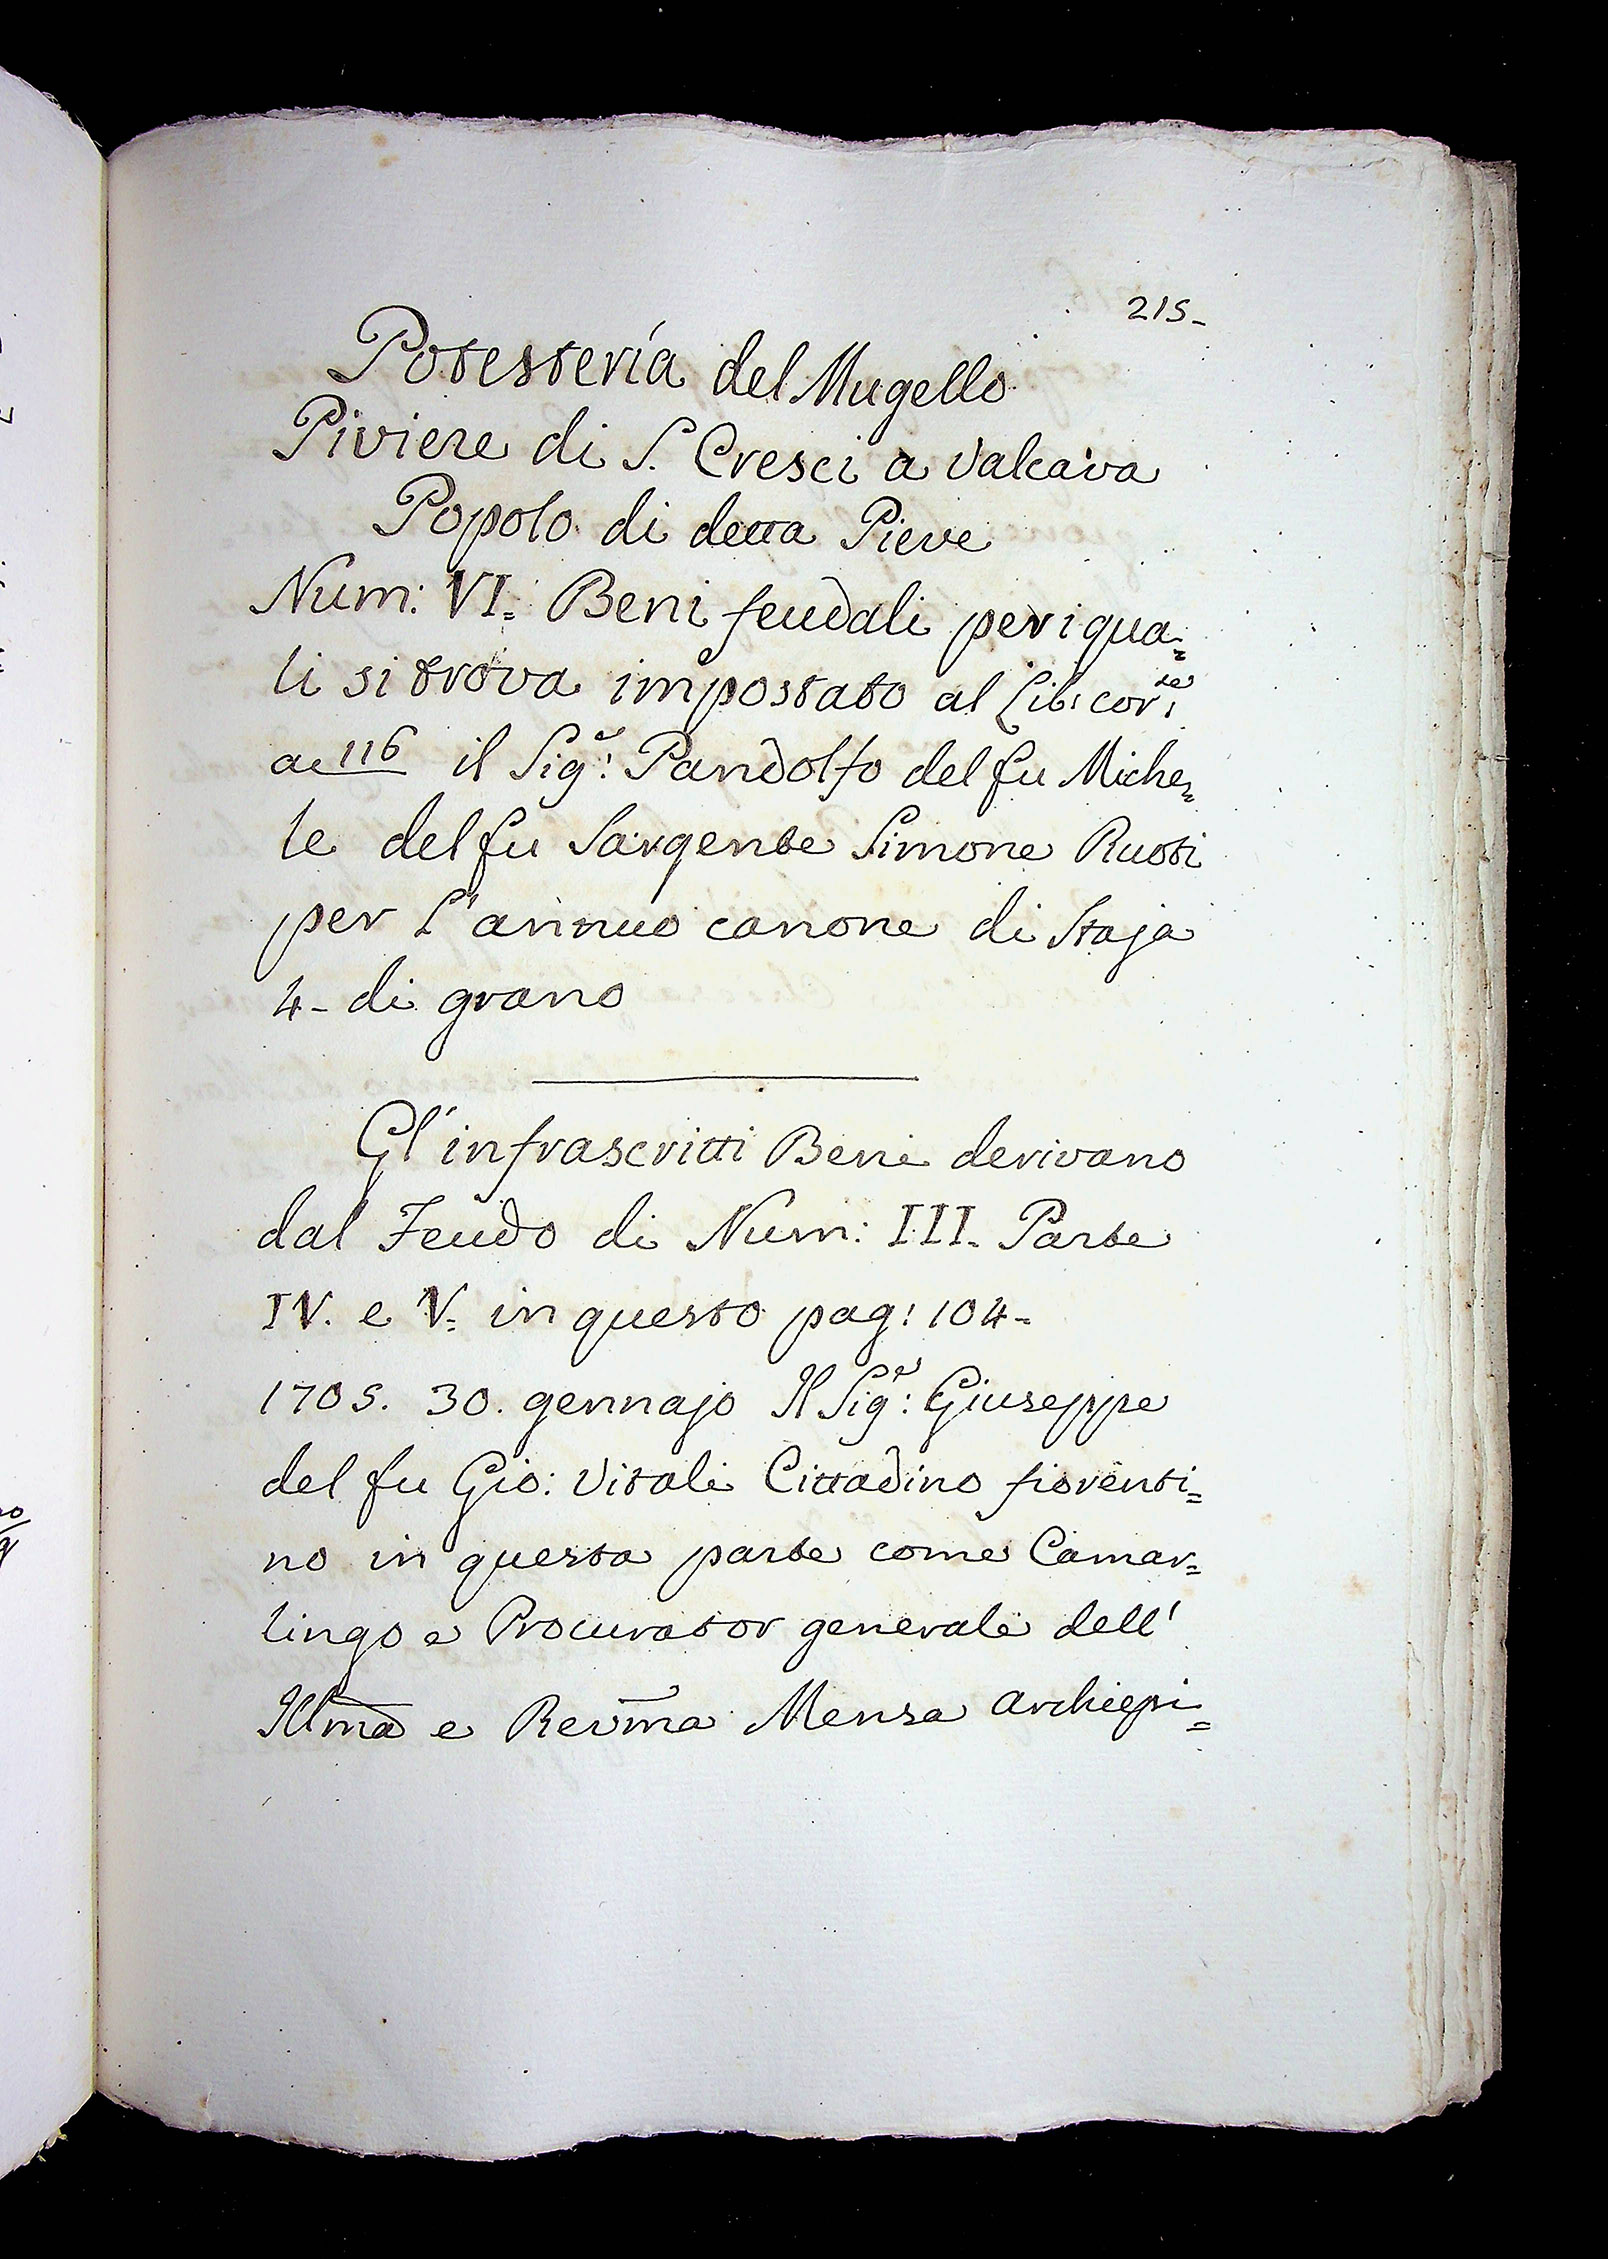 215-
Potestería del Mugello
Piviere di S. Cresci a Valcava
Popolo di detta Pieve
Num: VI= Beni feudali per i qua=
li si trova impostato al Lib: cor:te
ac 116 il Sig:e Pandolfo del fu Miche=
le del fu Sargente Simone Ruoti
per l'annuo canone di Staja
4- di grano
Gl'infrascritti Beni derivano
dal Feudo di Num: III- Parte
IV. e V= in questo pag: 104-
1705. 30. gennajo Il Sig:e Giuseppe
del fu Gio: Vitali Cittadino fiorenti=
no in questa parte come Camar=
lingo e Procurator generale dell'
Illma e Revma Mensa Archiepi=